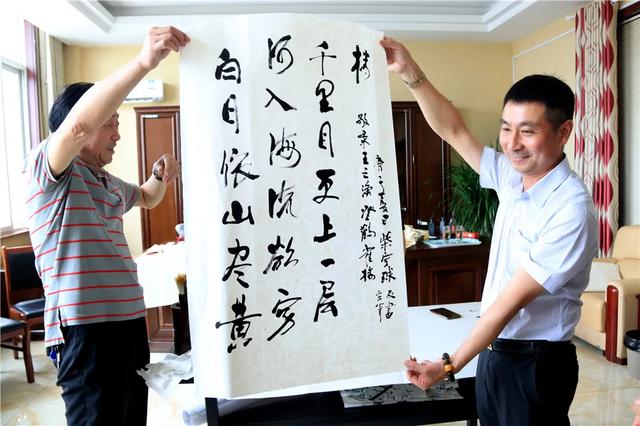 白日依山尽黄
河入海流欲穷
千里目更上一层
楼
王之涣登鹳雀楼